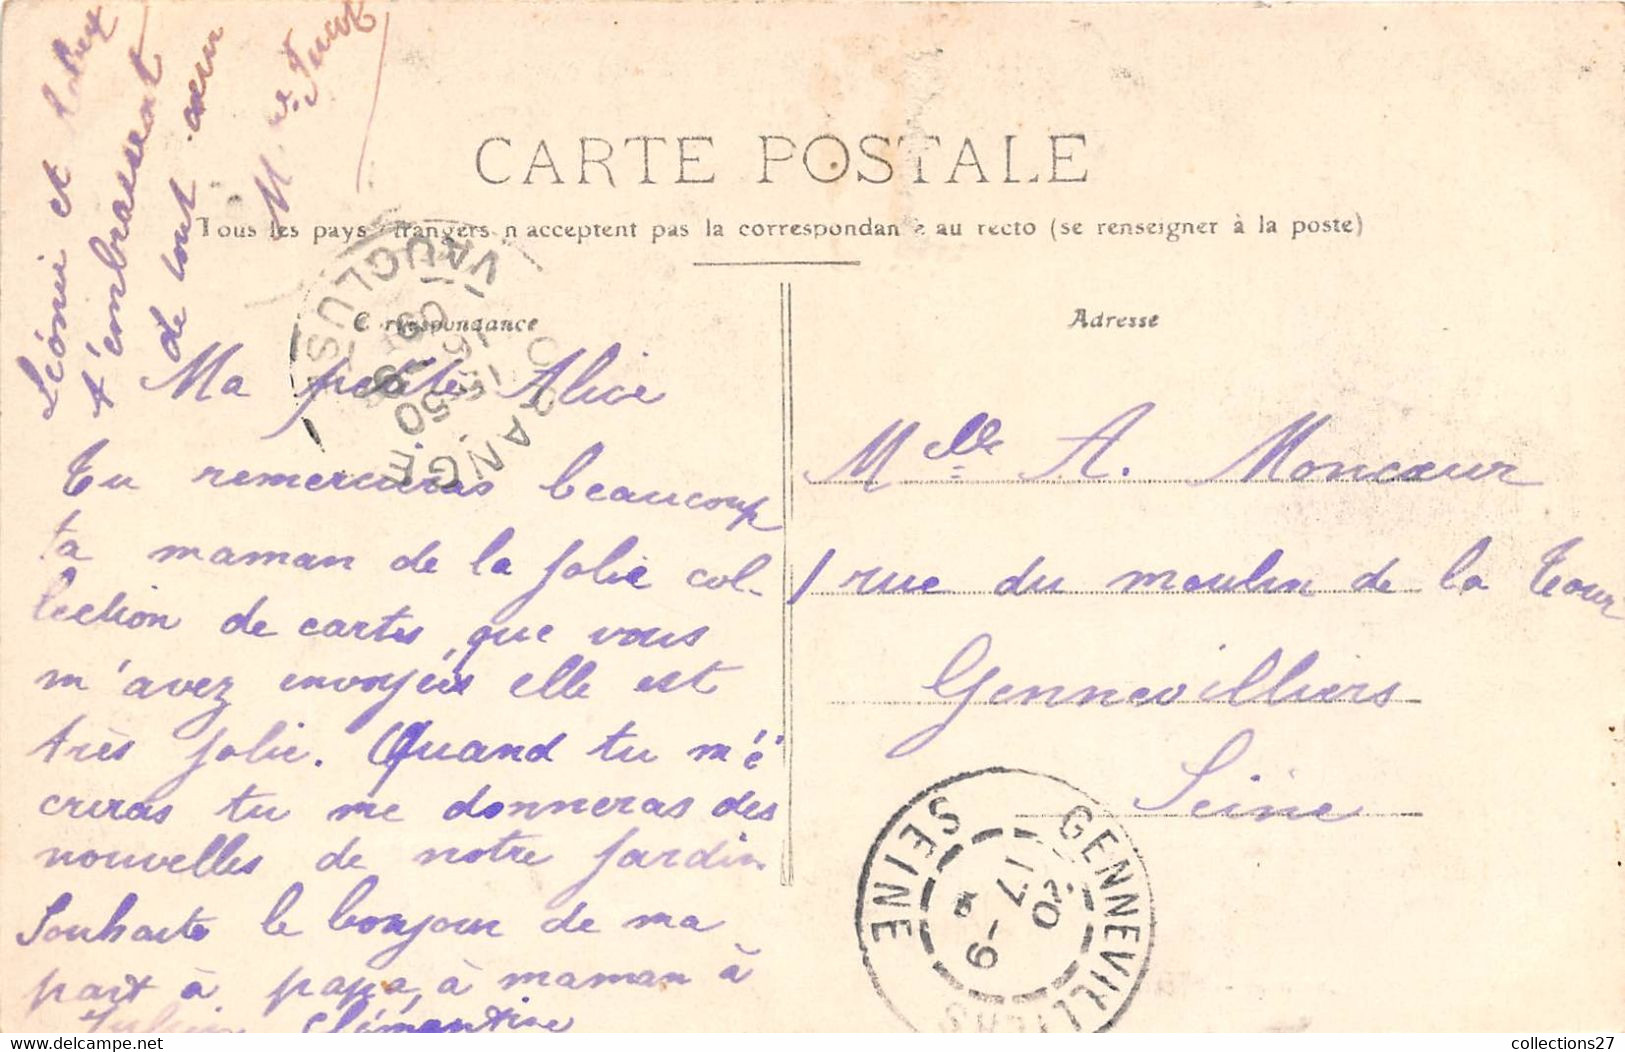 Léonie et
t'embrassent
de tout cœur
CARTE POSTALE
Tous les pays étrangers n'acceptent pas la correspondance au recto (se renseigner à la poste)
Correspondance
Ma petite Alice
Tu remercieras beaucoup
ta maman de la jolie col-
lection de cartes que vous
m'avez envoyées elle est
très jolie. Quand tu m'é
criras tu me donneras des
nouvelles de notre jardin
Souhaite le bonjour de ma
part à papa, à maman à
Clémentine
Adresse
Mlle A. Moncœur
1 rue du moulin de la Tour
Gennevilliers
Seine
ORANGE
VAUCLUSE
GENNEVILLIERS
SEINE
collections27